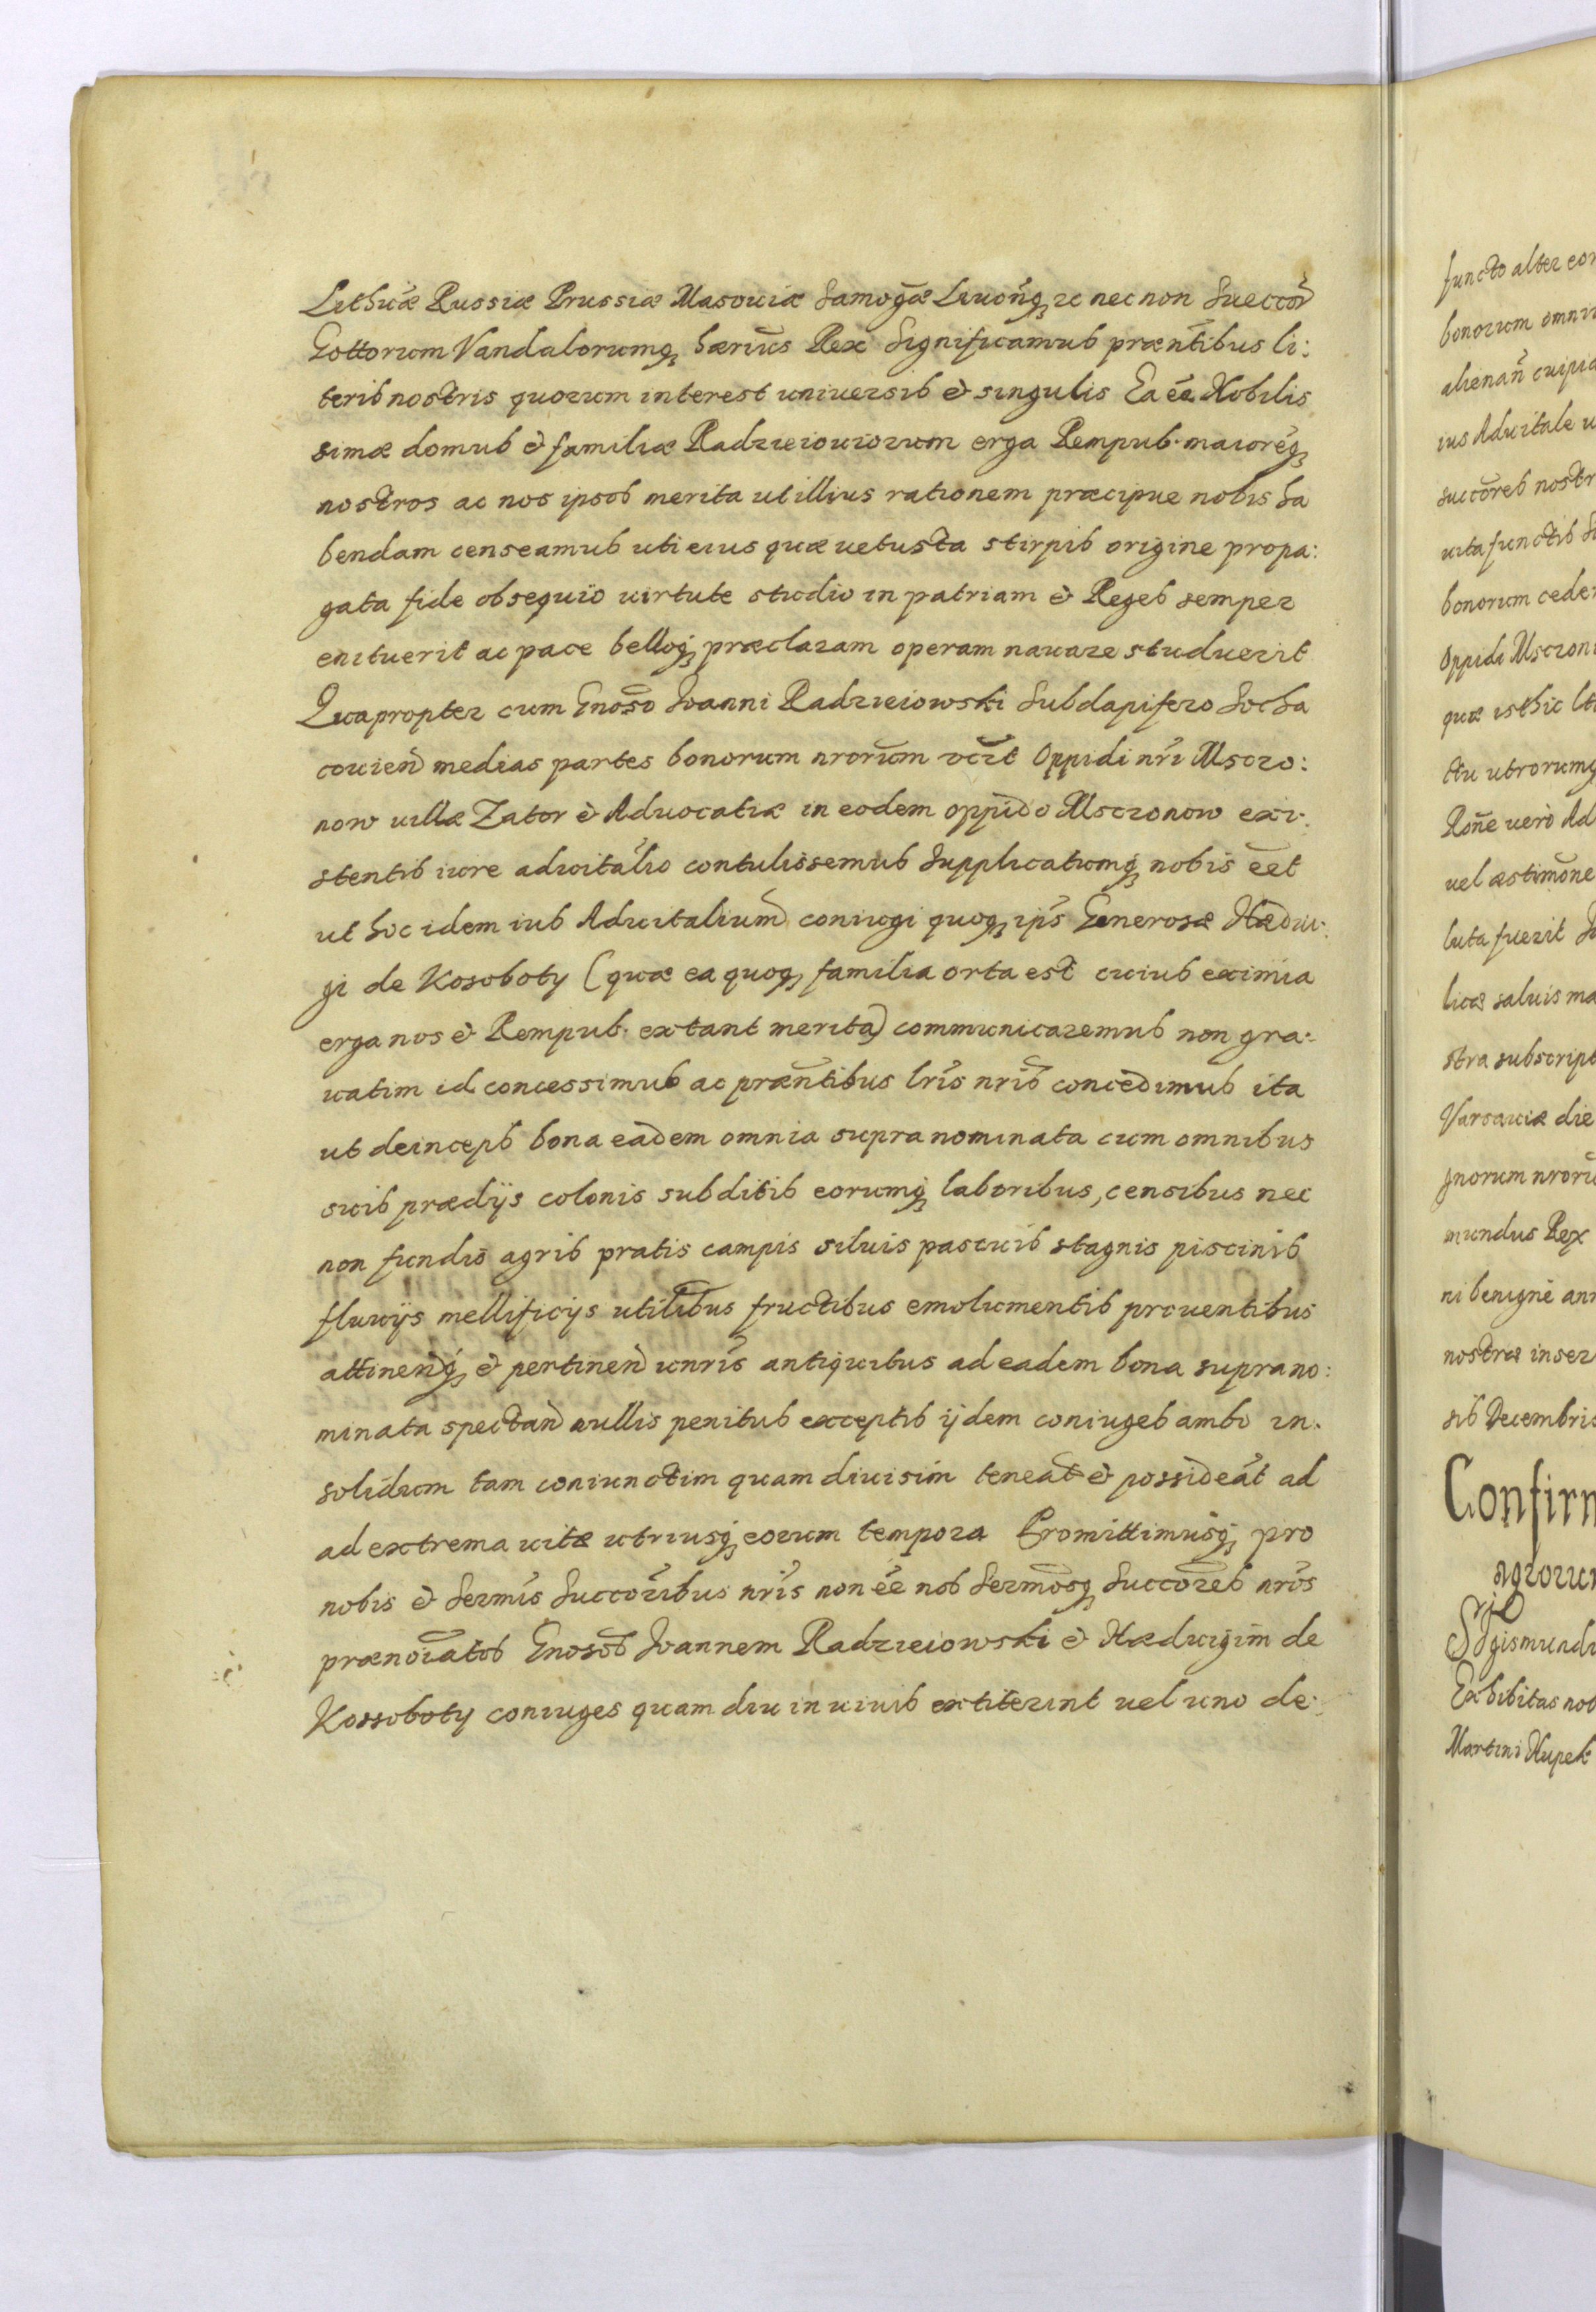 Lithuæ Russiæ Prussiæ Masouiæ Samogæ Liuonq̃ꝫ ꝛc nec non Sueccor̃
Gottorum Vandalorumqꝫ hærius Rex Significamus præntibus li:
teris nostris quorum interest uniuersis & singulis Ea ẽe Nobilis
simæ domus & familiæ Radzieiouiorum erga Rempub. maioresqꝫ
nostros ac nos ipsos merita ut illius rationem præcipue nobis ha
bendam censeamus uti eius quæ uetusta stirpis origine propa:
gata fide obsequio uirtute studio in patriam & Reges semper
enituerit ac pace belloqꝫ præclaram operam nauare studuerit
Quapropter cum Gnoso Joanni Radzieiowski Subdapifero Socha
couien̄ medias partes bonorum nrorum vczt Oppidi nri Msczo:
now uillæ Zator & Aduocatiæ in eodem oppido Msczonow exi:
stentis iure aduitalio contulissemus Supplicatumqꝫ nobis ēet
ut hoc idem ius Aduitalium coniugi quoqꝫ ips Generosæ Hædui:
gi de Kosoboty (quæ ea quoqꝫ familia orta est cuius eximia
erga nos & Rempub. extant merita) communicaremus non gra:
uatim id concessimus ac præntibus lris nris concedimus ita
ut deinceps bona eadem omnia supra nominata cum omnibus
suis prædijs colonis subditis eorumqꝫ laboribus, censibus nec
non fundis agris pratis campis siluis pascuis stagnis piscinis
fluuijs mellificijs utilibus fructibus emolumentis prouentibus
attinenqꝫ & pertinen̄ unris antiquitus ad eadem bona suprano:
minata spectan̄ nullis penitus exceptis ijdem coniuges ambo in.
solidum tam coniunctim quam diuisim teneāt & possideāt ad
ad extrema uitæ utriusqꝫ eorum tempora Promittimusqꝫ pro
nobis & Sermis Succoribus nris non ēe nos Sermosqꝫ Succores nros
prænoiatos Gnosos Joannem Radzieiowski & Hæduigim de
Kossoboty coniuges quam diu in uiuis extiterint uel uno de:
functo alter
bonorum
alienan̄ cuipia
ius Aduitale
succores nostr
uita functis
bonorum
Oppidi Msczon
quæ isthic
ctu utrorumqꝫ
Rone uero Ad
uel æstimone
luta fuerit
licæ saluis
stra subscript
Varsauiæ die
gnorum
mundus Rex
ni benigne
nostræ inser
sis Decembris
Confirm
agrorum
Sigismundu
Exhibitas
Martini